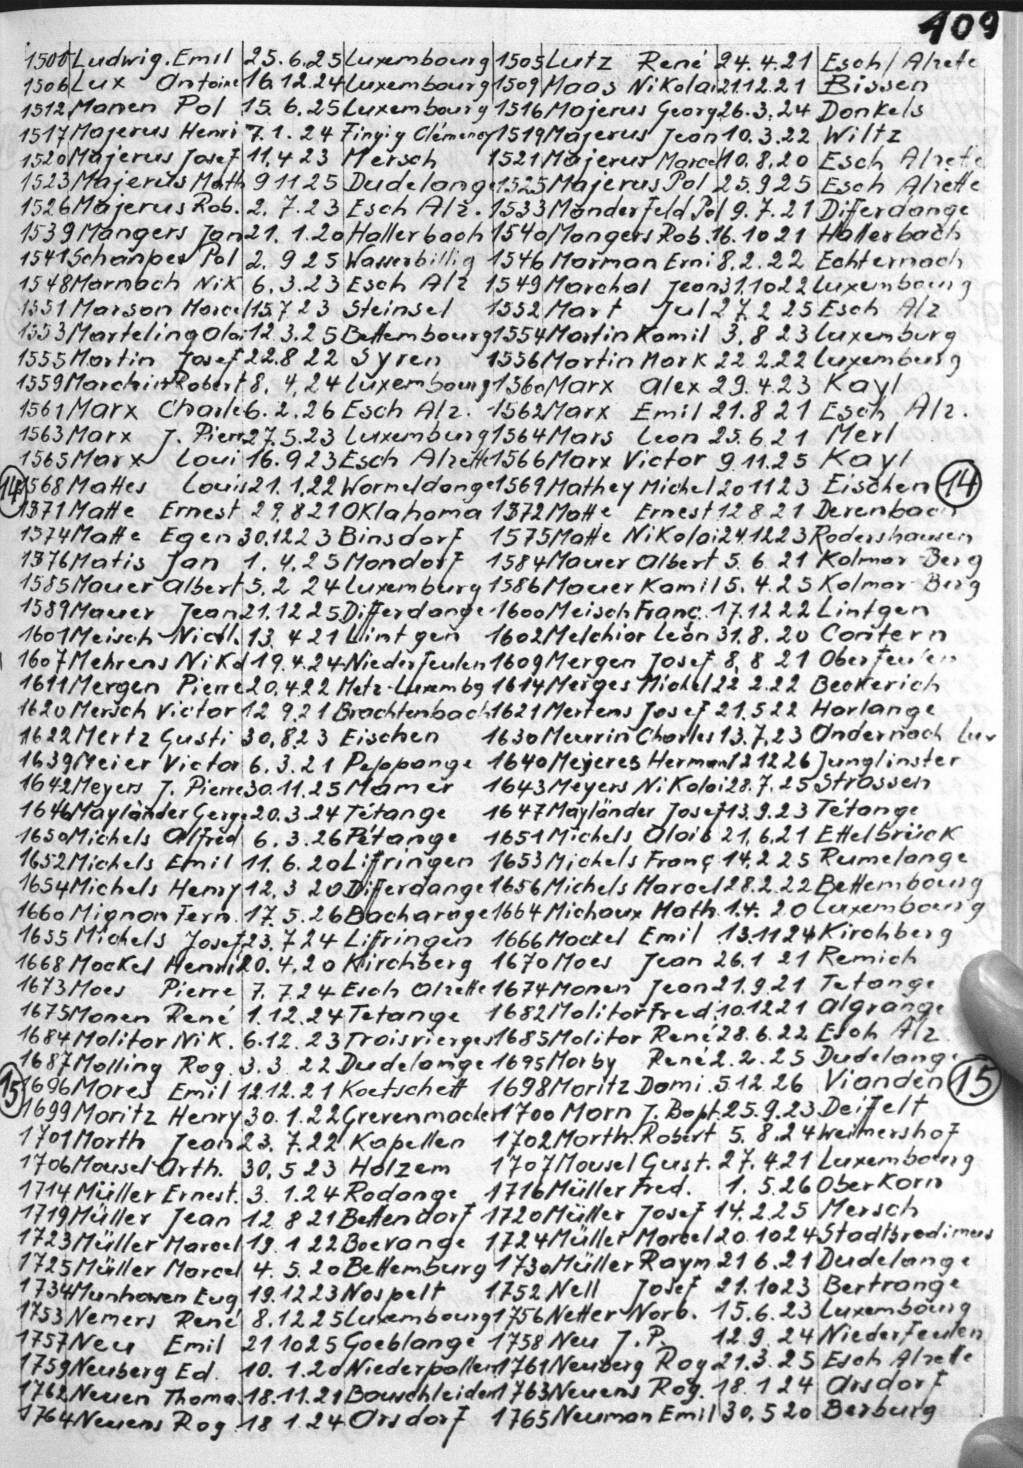 109
1500 Ludwig. Emil 25.6.25 Luxembourg 1505 Lutz René 24.4.21 Esch/Alzette
1506 Lux Antoine 16.12.24 Luxembourg 1509 Maas Nikolai 21.12.21 Bissen
1512 Manen Pol 15.6.25 Luxembourg 1516 Majerus Georg 26.3.24 Donkels
1517 Majerus Henri 7.1.24 Fingig Clémency 1519 Majerus Jean 10.3.22 Wiltz
1520 Majerus Josef 11.4 23 Mersch 1521 Majerus Marcel 10.8.20 Esch Alzette
1523 Majerus Math 9 11 25 Dudelange 1525 Majerus Pol 25.9 25 Esch Alzette
1526 Majerus Rob. 2. 7.23 Esch Alz. 1533 Manderfeld Pol 9.7.21 Differdange
1539 Mangers Jan 21. 1.20 Hallerbach 1540 Mongers Rob. 16.10 21 Hallerbach
1541 Pol 2. 9 25 Wasserbillig 1546 Marman Erni 8.2.22 Echternach
1548 Marnach Nik 6.3.23 Esch Alz 1549 Marchal Jean 31.10 22 Luxembourg
1551 Marson Marcel 15.7 23 Steinsel 1552 Mart Jul 27.2 25 Esch Alz
1553 Marteling Aloi 12 3.25 Bettembourg 1554 Martin Kamil 3.8 23 Luxemburg
1555 Martin Josef 22.8 22 Syren 1556 Martin Mark 22 2.22 Luxemburg
1559 Robert 8. 4.24 Luxembourg 1560 Marx Alex 29.4.23 Kayl
1561 Marx Charle 6.2.26 Esch Alz. 1562 Marx Emil 21.8 21 Esch Alz.
1563 Marx J. Pierr 27.5.23 Luxemburg 1564 Mars Leon 25.6.21 Merl
1565 Marx Loui 16.9 23 Esch Alzette 1566 Marx Victor 9.11.25 Kayl
14 1568 Mattes Louis 21.1.22 Wormeldange 1569 Mathey Michel 20 11 23 Eischen 14
1571 Matte Ernest 29.8 21 Oklahoma 1572 Matte Ernest 12 8.21 Derenbach
1574 Matte Egen 30.12 23 Binsdorf 1575 Matte Nikolai 24.12.23 Rodershausen
1576 Matis Jan 1. 4.25 Mondorf 1584 Mauer Albert 5. 6.21 Kolmar-Berg
1585 Mauer Albert 5.2 24 Luxemburg 1586 Mauer Kamil 5.4.25 Kolmar-Berg
1589 Mauer Jean 21.12 25 Differdange 1600 Meisch Franc. 17.12 22 Lintgen
1601 Meisch Nicol. 13. 4 21 Lintgen 1602 Melchior Leon 31.8.20 Contern
1607 Mehrens Nikol 19.4.24 Niederfeulen 1609 Mergen Josef 8.8 21 Oberfeulen
1611 Mergen Pierre 20.4.22 Metz-Luxembg 1614 Merges Michel 22 2.22 Beckerich
1620 Mersch Victor 12 9.21 Brachtenbach 1621 Mertens Josef 21.5 22 Harlange
1622 Mertz Gusti 30.8 23 Eischen 1630 Meurin Charles 13.7.23 Andernach Lux
1639 Meier Victor 6.3.21 Peppange 1640 Meyeres Herman 12 12 26 Junglinster
1642 Meyers J. Pierre 30.11.25 Mamer 1643 Meyers Nikolai 28.7.25 Strassen
1646 Mayländer Gerge 20.3.24 Tétange 1647 Mayländer Josef 13.9.23 Tétange
1650 Michels Alfred 6.3.26 Pétange 1651 Michels Alois 21.6.21 Ettelbrück
1652 Michels Emil 11.6.20 Lifringen 1653 Michels Franç 14.2 25 Rumelange
1654 Michels Henry 12.3 20 Differdange 1656 Michels Marcel 28.2.22 Bettembourg
1660 Mignon Fern. 17.5.26 Bacharage 1664 Michaux Math. 1.4. 20 Luxembourg
1655 Michels Josef 23.7 24 Lifringen 1666 Mockel Emil 13.11 24 Kirchberg
1668 Mockel Henri 20.4.20 Kirchberg 1670 Moes Jean 26.1 21 Remich
1673 Moes Pierre 7. 7.24 Esch Alzette 1674 Monen Jean 21.9.21 Tetange
1675 Monen René 1.12.24 Tetange 1682 Molitor Fred. 10.12 21 Algrange
1684 Molitor Nik. 6.12. 23 Troisvierges 1685 Molitor René 28.6.22 Esch Alz
1687 Molling Rog. 3.3. 22 Dudelange 1695 Morby René 2.2.25 Dudelange
15 1696 Mores Emil 12.12.21 Koetschett 1698 Moritz Domi. 5.12.26 Vianden 15
1699 Moritz Henry 30.1.22 Grevenmacher 1700 Morn J. Bapt. 25.9.23 Deiffelt
1701 Morth Jean 23. 7.22 Kapellen 1702 Morth. Robert 5.8.24 Weimershof
1706 Mousel Arth. 30.5 23 Holzem 1707 Mousel Gust. 27.4.21 Luxembourg
1714 Müller Ernest. 3. 1.24 Rodange 1716 Müller Fred. 1.5.26 Oberkorn
1719 Müller Jean 12 8 21 Bettendorf 1720 Müller Josef 14.2.25 Mersch
1723 Müller Marcel 19. 1 22 Boevange 1724 Müller Marcel 20.10 24 Stadtbredimus
1725 Müller Marcel 4.5.20 Bettemburg 1730 Müller Raym. 21 6.21 Dudelange
1734 Munhowen Eug 19.12 23 Nospelt 1752 Nell Josef 21.10 23 Bertrange
1753 Nemers René 8.12.25 Luxembourg 1756 Netter Norb. 15.6.23 Luxembourg
1757 Neu Emil 21 10 25 Goeblange 1758 Neu J.P. 12.9.24 Niederfeulen
1759 Neuberg Ed. 10. 1.20 Niederpallen 1761 Neuberg Rog 21.3.25 Esch Alzette
1762 Neuen Thoma. 18.11.21 Bauschleiden 1763 Neuens Rog. 18.1 24 Arsdorf
1764 Neuens Rog. 18 1.24 Arsdorf 1765 Neuman Emil 30.5 20 Berburg